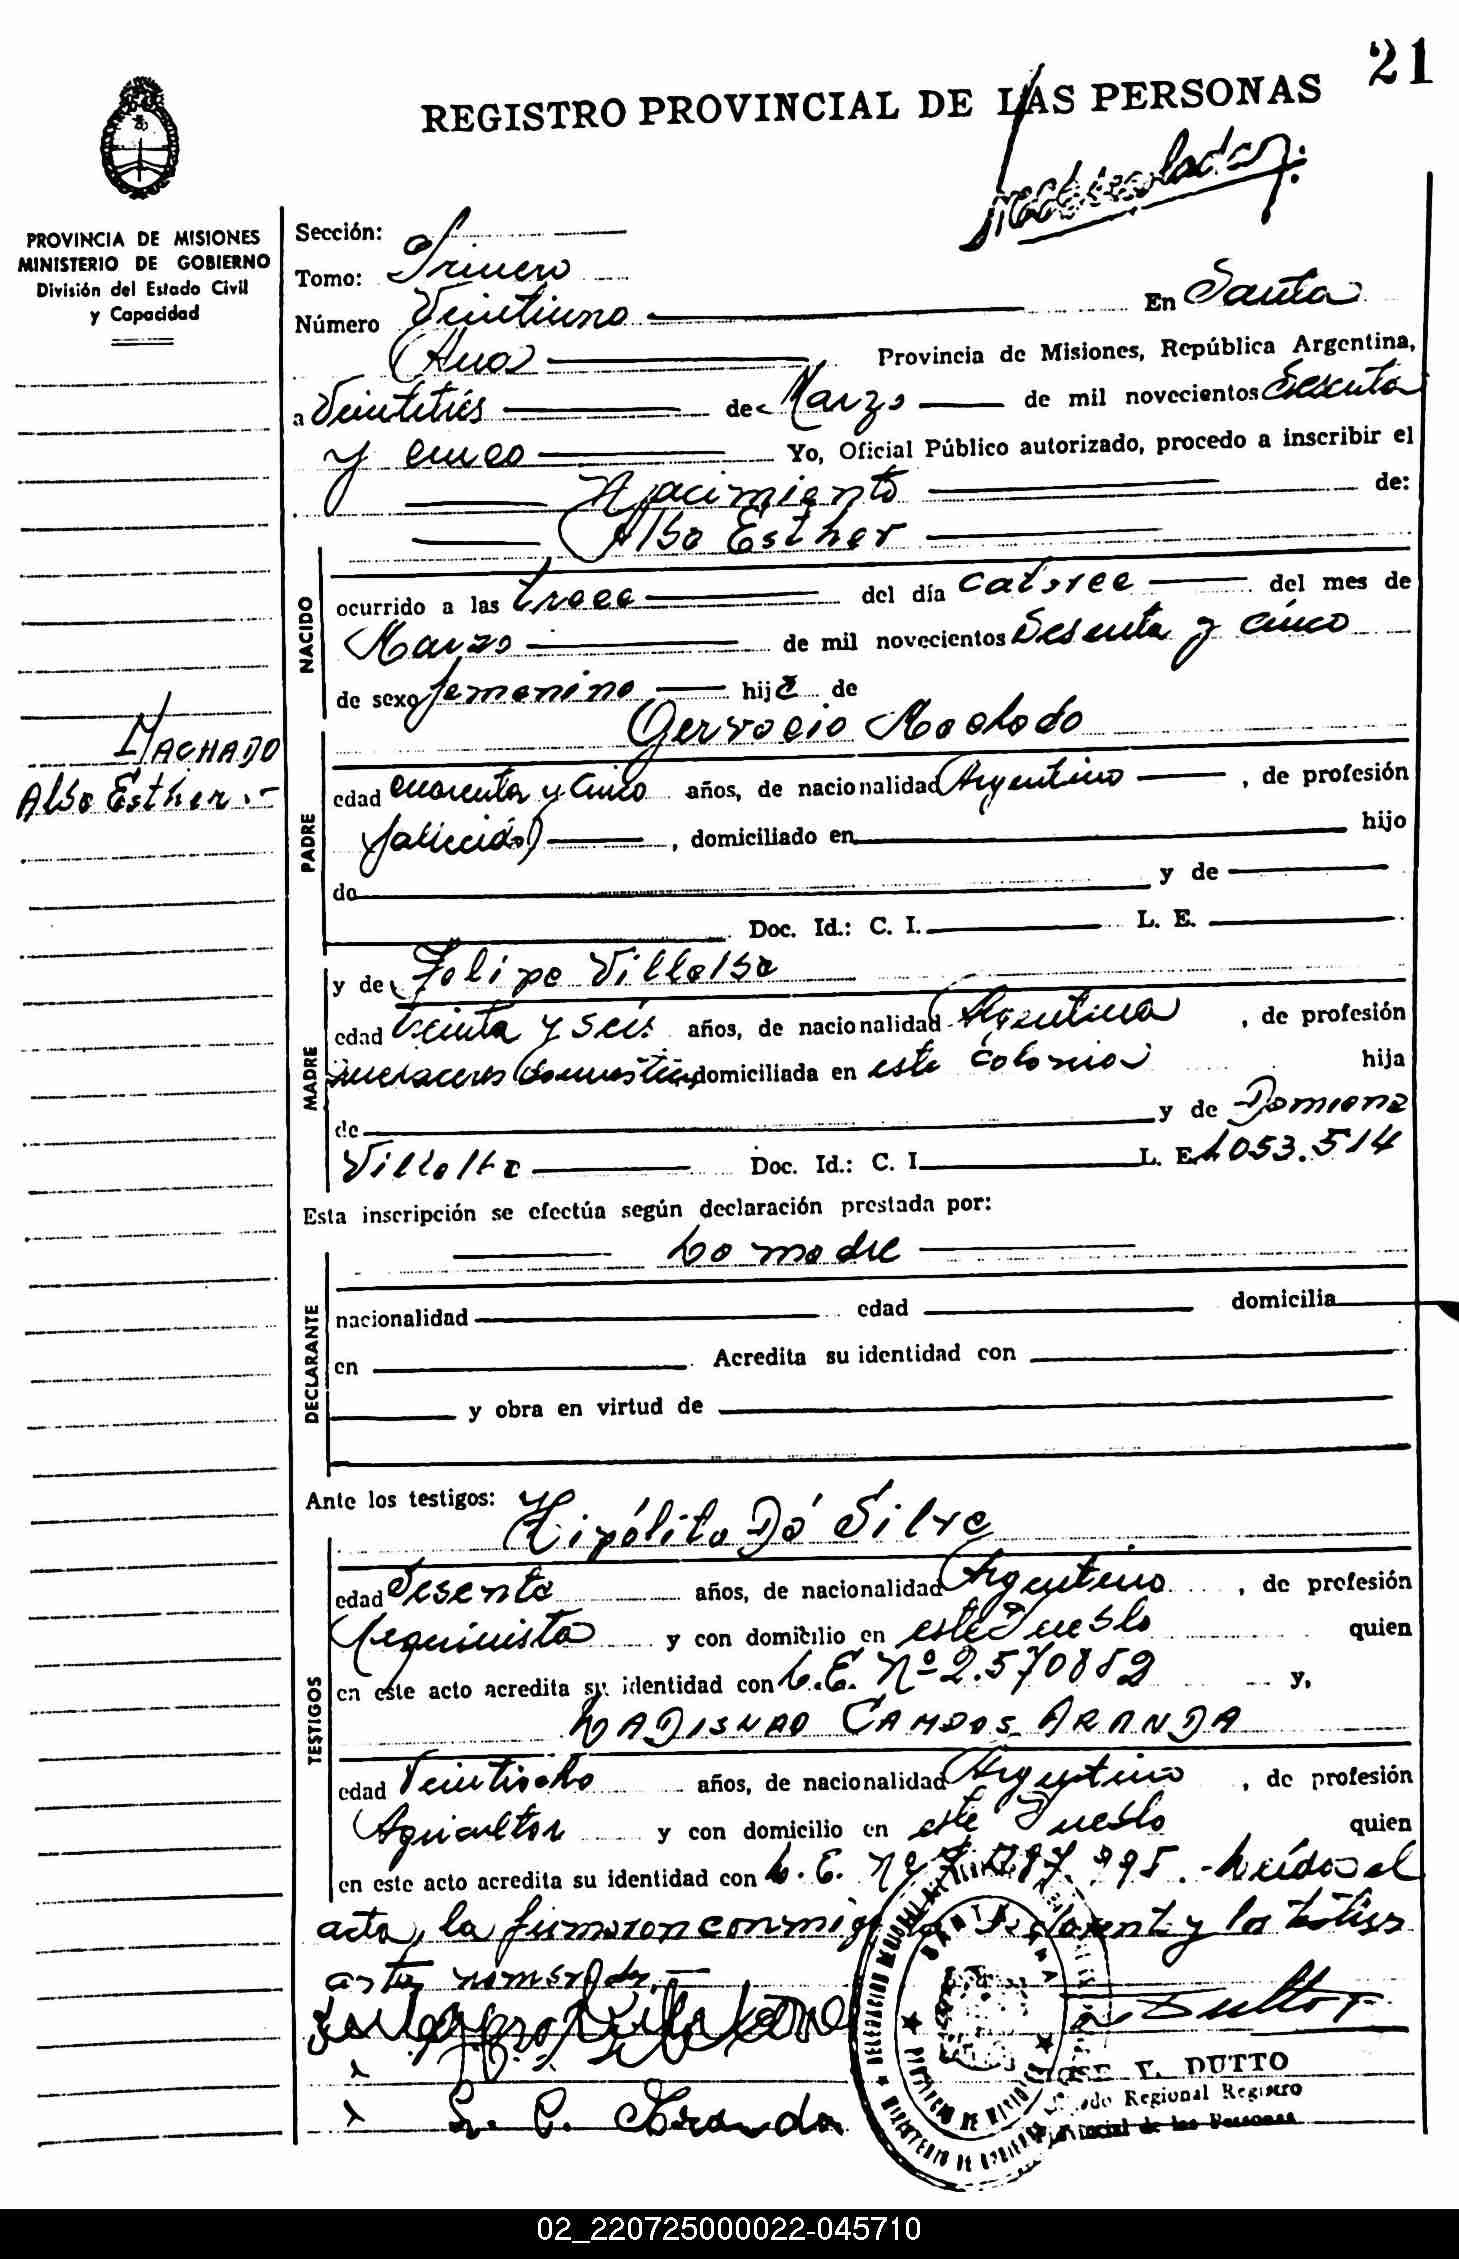 21
REGISTRO PROVINCIAL DE LAS PERSONAS
PROVINCIA DE MISIONES
MINISTERIO DE GOBIERNO
División del Estado Civil
y Capacidad
MACHADO
Alba Esther.-
Sección:
Tomo: Primero
Número Veintiuno En Santa
Ana Provincia de Misiones, República Argentina,
a Veintitrés de Marzo de mil novecientos Sesenta
y cinco Yo, Oficial Público autorizado, procedo a inscribir el
Nacimiento de:
Alba Esther
NACIDO
ocurrido a las trece del día catorce del mes de
Marzo de mil novecientos Sesenta y cinco
de sexo femenino hija de
Gervacio Machado
PADRE
edad cuarenta y cinco años, de nacionalidad Argentino, de profesión
fallecido), domiciliado en hijo
de y de
Doc. Id.: C. I. L. E.
MADRE
y de Felipa Villalba
edad treinta y seis años, de nacionalidad Argentina, de profesión
domiciliada en esta Colonia hija
de y de Damiana
Villalba Doc. Id.: C. I. L. E. 1053.514
Esta inscripción se efectúa según declaración prestada por:
La madre
DECLARANTE
nacionalidad edad domicilia
en Acredita su identidad con
y obra en virtud de
Ante los testigos:
Hipólito Dá Silva
TESTIGOS
edad Sesenta años, de nacionalidad Argentino, de profesión
Maquinista y con domicilio en este Pueblo quien
en este acto acredita su identidad con L.E. Nº 2.570882 y,
LADISLAO CAMPOS ARANDA
edad Veintiocho años, de nacionalidad Argentino, de profesión
Agricultor y con domicilio en este Pueblo quien
en este acto acredita su identidad con L.E. Nº 995.- Leída el
acta, la firmaron conmigo y los testigos
L. C. Aranda
DELEGACION
SANTA ANA
PROVINCIA DE MISIONES
MINISTERIO DE GOBIERNO
JOSE V. DUTTO
Regional Registro
Provincial de las Personas
02_220725000022-045710